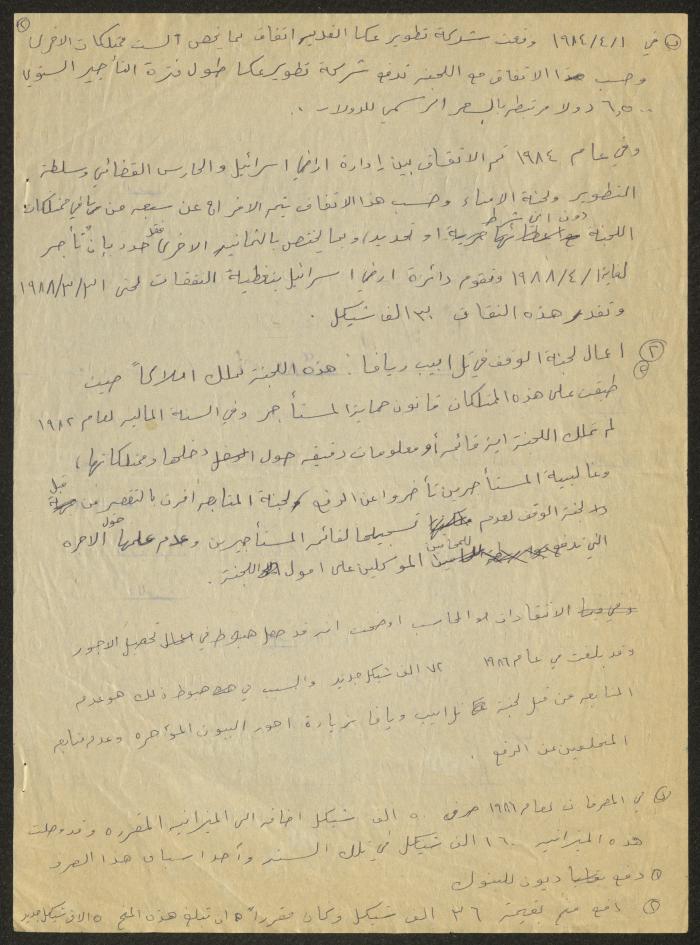 في ١٩٨٤/٤/١ وقعت شركة تطوير عكا القديمة اتفاق بما يخص الست ممتلكات الاخرى
وحسب هذا الاتفاق مع اللجنة تدفع شركة تطوير عكا طول فترة التأجير السنوي
٦,٥٠٠ دولار مرتبطة بالسعر الرسمي للدولار.
وفي عام ١٩٨٤ تم الاتفاق بين إدارة اراضي اسرائيل والحارس القضائي وسلطة
التطوير ولجنة الامناء وحسب هذا الاتفاق يتم الافراج عن سبعة من ممتلكات
اللجنة دون اي شرط او تحديد، وبما يختص بالثمانية الاخرى فقد حدد بأن تأجر
لغاية ١٩٨٨/٤/١ وتقوم دائرة اراضي اسرائيل بتغطية النفقات لحتى ١٩٨٨/٣/٣١
وتقدر هذه النفقات ٣٠ الف شيكل.
٢ اعمال لجنة الوقف في تل ابيب ويافا: هذه اللجنة تملك املاكاً حيث
طبقت على هذه الممتلكات قانون حماية المستأجر وفي السنة المالية لعام ١٩٨٢
لم تملك اللجنة اية قائمة أو معلومات دقيقة حول دخلها وممتلكاتها،
وغالبية المستأجرين تأخروا عن الدفع ولجنة المتابعة أقرت بالتقصير من قبل
لجنة الوقف لعدم تسجيلها لقائمة المستأجرين وعدم علمها حول الاجرة
التي تدفع للمحامين الموكلين على اموال اللجنة.
الانتقادات المحاسب اوضحت انه قد حصل هبوط في تحصيل الاجور
وقد بلغت في عام ١٩٨٦ ٧٢ الف شيكل جديد والسبب في هبوط ذلك هو عدم
المتابعة من قبل لجنة تل ابيب ويافا بزيادة اجور البيوت المؤاجرة وعدم متابعة
المتخلفين عن الدفع.
في المصروفات لعام ١٩٨٦ صرف ٥٠ الف شيكل اضافة الى الميزانية المقررة وقد وصلت
هذه الميزانية ١٦٠ الف شيكل في تلك السنة وأحد اسباب هذا الصرف
دفع ديون للبنوك
دفع منح بقيمة ٣٦ الف شيكل وكان مقرراً ان تبلغ هذه المنح ٥ الاف شيكل جديد